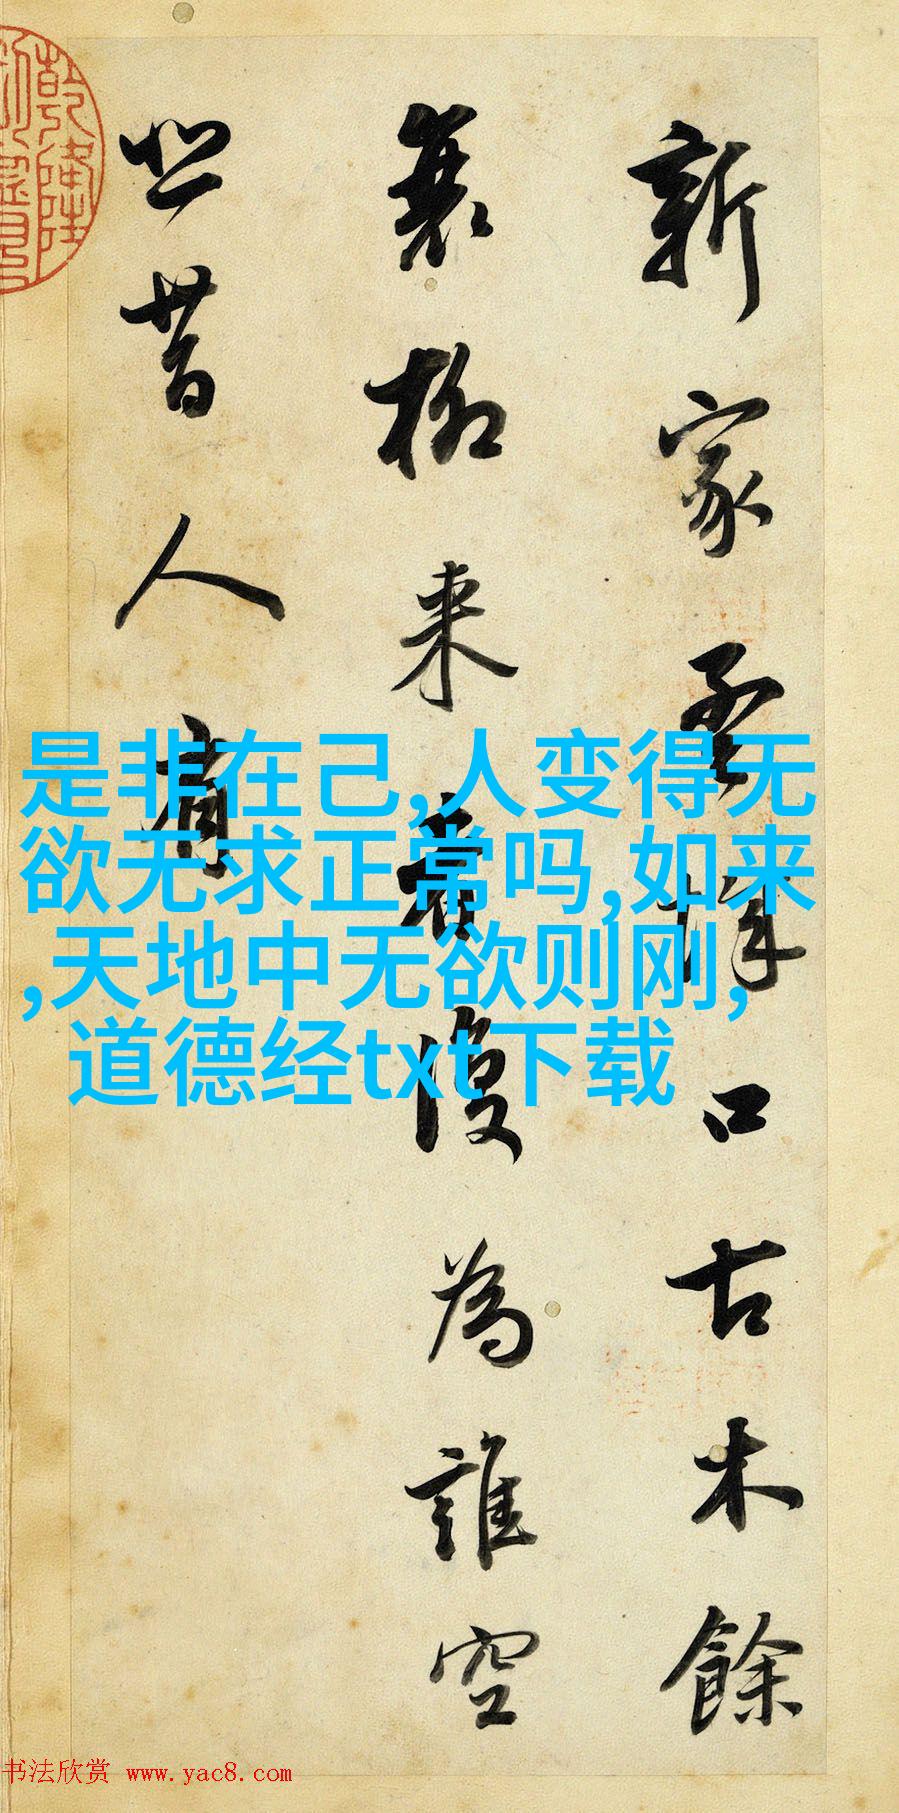 新家孟城口古木餘
衰柳来者復為誰空
悲昔人有
是非在己,人变得无
欲无求正常吗,如来
,天地中无欲则刚,
道德经txt下载
乾隆
书法欣赏 www.yac8.com